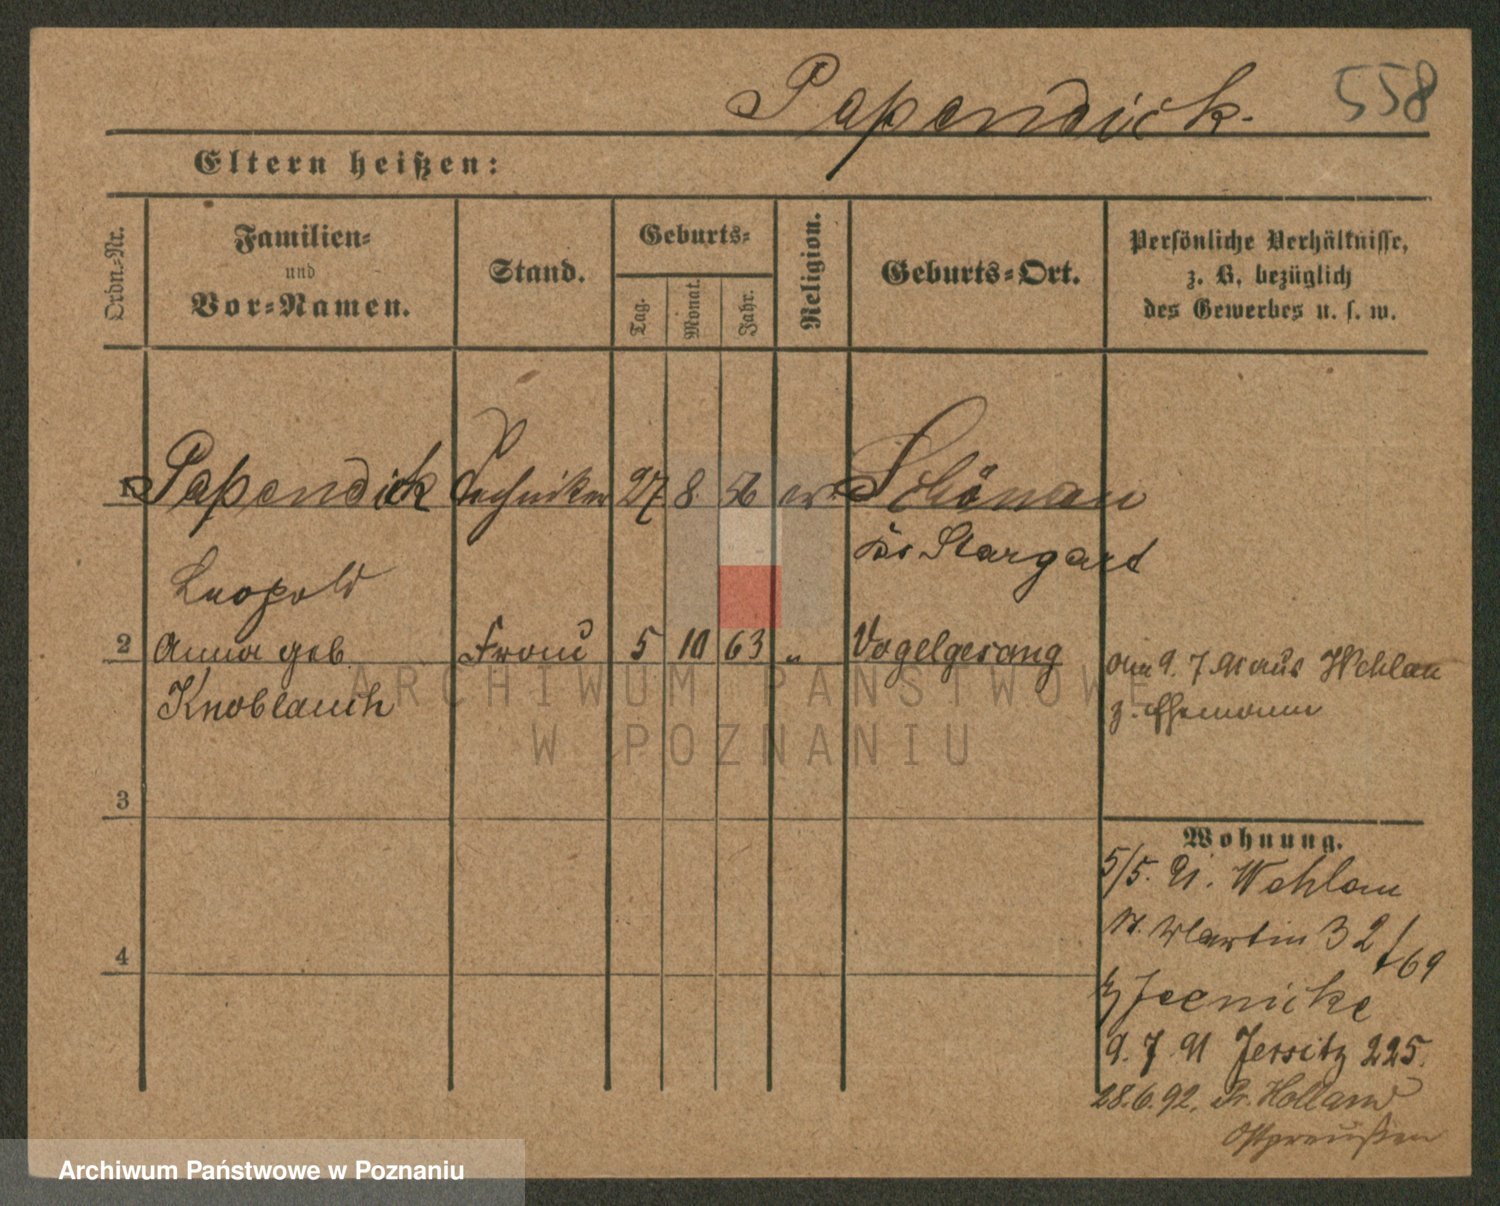 Papendick.
558
Eltern heißen:
Ordn.-Nr.
Familien-
und
Vor-Namen.
Stand.
Geburts-
Tag.
Monat.
Jahr.
Religion.
Geburts-Ort.
Persönliche Verhältnisse,
z. B. bezüglich
des Gewerbes u. s. w.
1 Papendick Techniker 27 8. 56 ev. Schönau
Leopold
Kr Stargart
2 Anna geb. Frau 5 10 63 „ Vogelgesang
Knoblauch
9. 7. 91 aus Wehlau
z. Ehemann
3
4
Wohnung.
5/5. 91. Wehlau
St. Martin 32/69
b/ Jaenicke
9. 7. 91 Jersitz 225.
28.6.92. Pr. Holland
Ostpreußen
ARCHIWUM PAŃSTWOWE
W POZNANIU
Archiwum Państwowe w Poznaniu